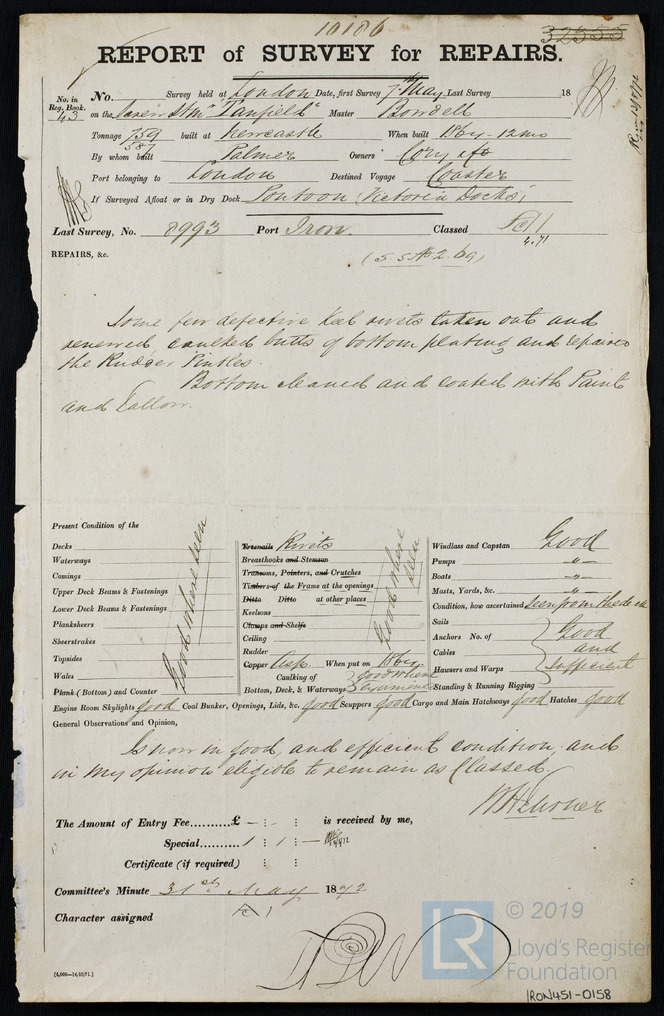 10186
32555
REPORT of SURVEY for REPAIRS.
No. in Reg. Book. 43
No. Survey held at London Date, first Survey 7th May Last Survey 18
on the Screw Stmr "Tanfield" Master Bowdell
Tonnage 759 built at Newcastle When built 1864 - 12mo
587
By whom built Palmer Owners Cory & Co
Port belonging to London Destined Voyage Coaster
If Surveyed Afloat or in Dry Dock Pontoon (Victoria Docks)
Last Survey, No. 8993 Port Iron. Classed
4.71
REPAIRS, &c. (S S No 2. 69)
Some few defective keel rivets taken out and
renewed caulked butts of bottom plating and repaired
the Rudder Pintles.
Bottom cleaned and coated with Paint
and Tallow.
Present Condition of the
Decks
Waterways
Comings
Upper Deck Beams & Fastenings
Lower Deck Beams & Fastenings
Planksheers
Sheerstrakes
Topsides
Wales
Plank (Bottom) and Counter
Good where seen
Treenails Rivets
Breasthooks and Stemson
Transoms, Pointers, and Crutches
Timbers of the Frame at the openings
Ditto Ditto at other places
Keelsons
Clamps and Shelfs
Ceiling
Rudder
Good where seen
Copper When put on 1864
Caulking of Bottom, Deck, & Waterways good where examined
Windlass and Capstan Good
Pumps "
Boats "
Masts, Yards, &c. "
Condition, how ascertained seen from the deck
Sails
Anchors No. of
Cables
Hawsers and Warps
Standing & Running Rigging
Good and sufficient
Engine Room Skylights good Coal Bunker, Openings, Lids, &c. good Scuppers good Cargo and Main Hatchways good Hatches good
General Observations and Opinion,
Is now in good, and efficient condition, and
in my opinion eligible to remain as Classed.
The Amount of Entry Fee..........£ - : - : is received by me,
Special.......... 1 : 1 : -
Certificate (if required) : :
Committee's Minute 31st May 1872
Character assigned
[4,000—14,10/71.]
LR
© 2019
Lloyd's Register
Foundation
IRON451-0158